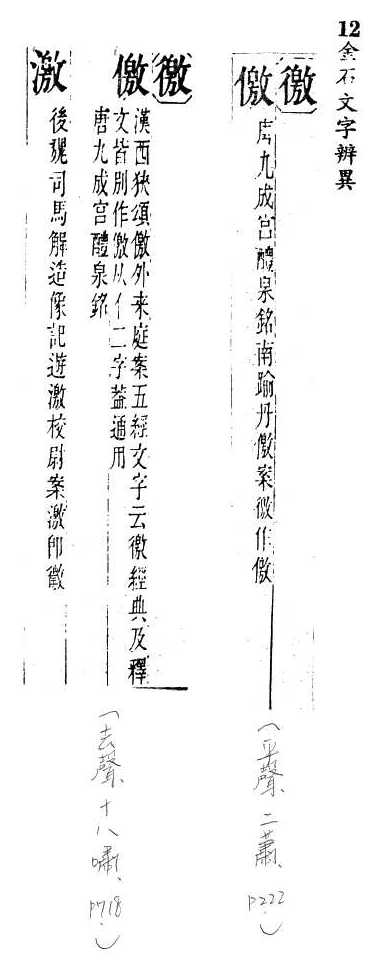 12金石文字辨異
徼
僥
唐九成宮醴泉銘南踰丹僥案徼作僥
徼
僥
漢西狹頌僥外來庭案五經文字云徼經典及釋
文皆別作僥从亻二字蓋通用
唐九成宮醴泉銘
激
後魏司馬解造像記遊激校尉案激即徼
(平聲、二蕭、P222)
(去聲、十八嘯、P718)